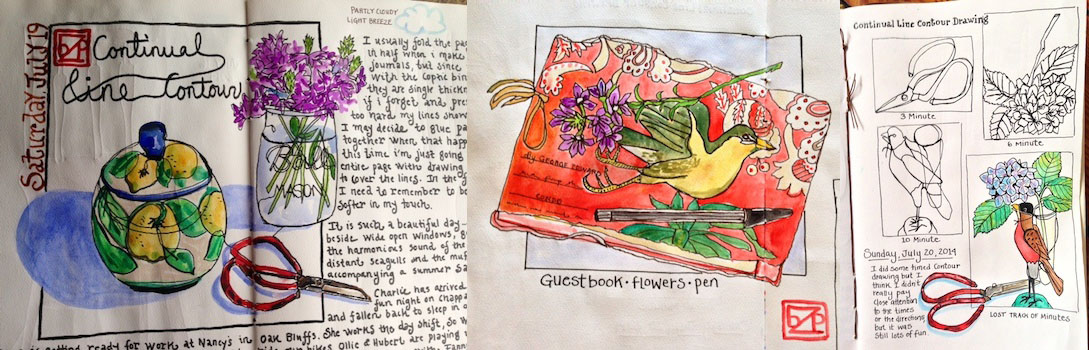 Saturday, July 19
Continual
Line Contour
PARTLY CLOUDY
LIGHT BREEZE
I usually fold the pa
in half when i make
journals, but since
with the Coptic bin
they are single thickn
if i forget and pre
too hard my lines show
I may decide to glue pa
together when that happ
this time i'm just going
entire page with drawing
to cover the lines. In the f
I need to remember to be
softer in my touch.
Ball
MASON
It is such a beautiful day
beside wide open windows,
the harmonious sound of the
distant seagulls and the muf
accompanying a summer Sa
Charlie has arrived
fun night on Chappa
and fallen back to sleep in
getting ready for work at Nancy's in Oak Bluffs. She works the day shift, so w
bikes. Ollie & Hubert are playing
by GEORGE
COMBO
Guestbook • flowers • pen
Continual Line Contour Drawing
3 Minute
6 Minute
10 Minute
Sunday, July 20, 2014
I did some timed Contour
drawing but I
think I didn't
really pay
close attention
to the times
or the directions
but it was
still lots of fun.
LOST TRACK OF MINUTES